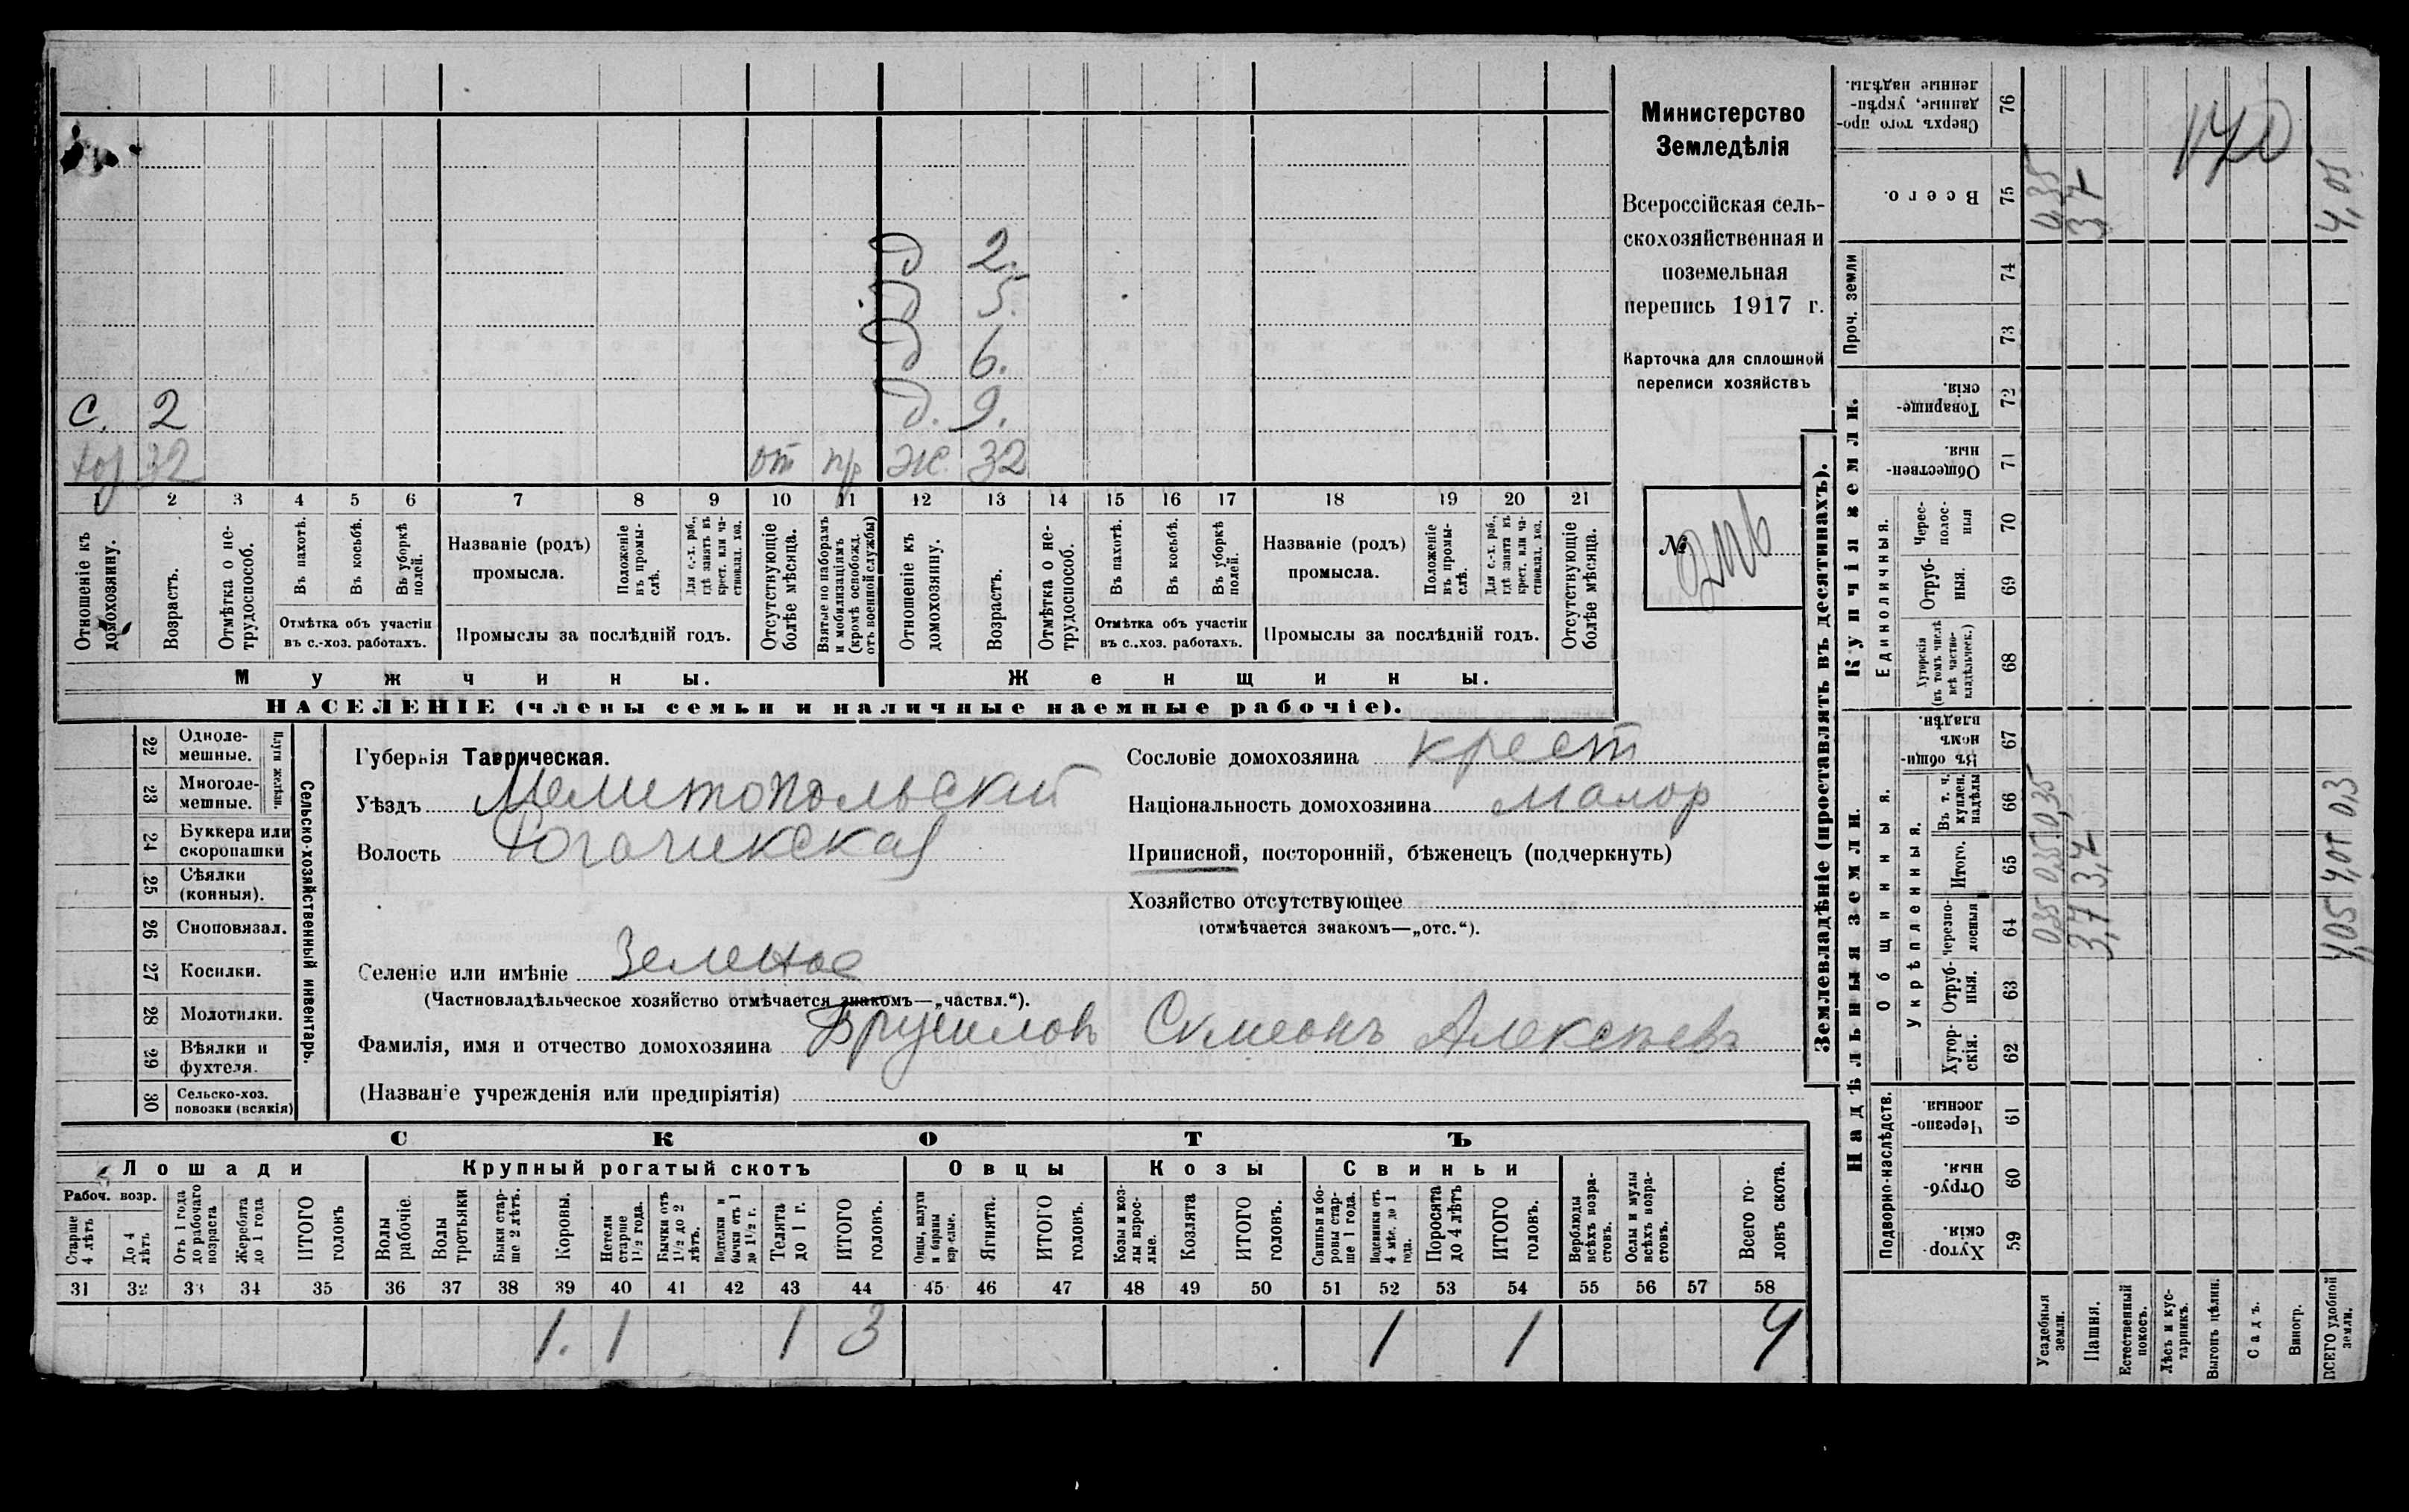 Министерство
Земледѣлія
Всероссійская сель-
скохозяйственная и
поземельная
перепись 1917 г.
Карточка для сплошной
переписи хозяйствъ
№
д 2.
д 5.
д 6.
с. 2 д. 9.
хоз 32 от пр ж. 32
1 2 3 4 5 6 7 8 9 10 11 12 13 14 15 16 17 18 19 20 21
Отношеніе къ домохозяину.
Возрастъ.
Отмѣтка о не-трудоспособ.
Въ пахотѣ.
Въ косьбѣ.
Въ уборкѣ полей.
Отмѣтка объ участіи
въ с.-хоз. работахъ.
Названіе (родъ)
промысла.
Положеніе въ промы-слѣ.
Для с.-х. раб., гдѣ занятъ въ крест. или ча-стновлад. хоз.
Промыслы за послѣдній годъ.
Отсутствующіе болѣе мѣсяца.
Взятые по наборамъ и мобилизаціямъ (кромѣ освобожд. отъ военной службы)
Отношеніе къ домохозяину.
Возрастъ.
Отмѣтка о не-трудоспособ.
Въ пахотѣ.
Въ косьбѣ.
Въ уборкѣ полей.
Отмѣтка объ участіи
въ с.-хоз. работахъ.
Названіе (родъ)
промысла.
Положеніе въ промы-слѣ.
Для с.-х. раб., гдѣ занята въ крест. или ча-стновлад. хоз.
Промыслы за послѣдній годъ.
Отсутствующіе болѣе мѣсяца.
Мужчины. Женщины.
НАСЕЛЕНІЕ (члены семьи и наличные наемные рабочіе).
Сельско-хозяйственный инвентарь.
Плуги желѣзн.
22 Одноле-мешные.
23 Многоле-мешные.
24 Буккера или скоропашки
25 Сѣялки (конныя).
26 Сноповязал.
27 Косилки.
28 Молотилки.
29 Вѣялки и фухтеля.
30 Сельско-хоз. повозки (всякія)
Губернія Таврическая.
Уѣздъ Мелитопольский
Волость Рогачикская
Селеніе или имѣніе Зеленое
(Частновладѣльческое хозяйство отмѣчается знакомъ—„частвл.“).
Фамилія, имя и отчество домохозяина Брусиловъ Симеонъ Алексѣевъ
(Названіе учрежденія или предпріятія)
Сословіе домохозяина крест
Національность домохозяина малор
Приписной, посторонній, бѣженецъ (подчеркнуть)
Хозяйство отсутствующее
(отмѣчается знакомъ—„отс.“).
СКОТЪ
Лошади Крупный рогатый скотъ Овцы Козы Свиньи
Рабоч. возр.
Старше 4 лѣтъ
До 4 лѣтъ
Отъ 1 года до рабочаго возраста
Жеребята до 1 года
ИТОГО головъ
Волы рабочіе.
Волы третьяки
Быки стар-ше 2 лѣтъ.
Коровы.
Нетели старше 1½ года.
Бычки отъ 1½ до 2 лѣтъ.
Подтелки и бычки отъ 1 до 1½ г.
Телята до 1 г.
ИТОГО головъ.
Овцы, валухи и бараны взрослые.
Ягнята.
ИТОГО головъ.
Козы и коз-лы взрос-лые.
Козлята
ИТОГО головъ.
Свиньи и бо-ровы стар-ше 1 года.
Подсвинки отъ 4 мѣс. до 1 года.
Поросята до 4 лѣтъ
ИТОГО головъ.
Верблюды всѣхъ возра-стовъ.
Ослы и мулы всѣхъ возра-стовъ.
Всего го-ловъ скота.
31 32 33 34 35 36 37 38 39 40 41 42 43 44 45 46 47 48 49 50 51 52 53 54 55 56 57 58
1. 1 1 3 1 1 4
Землевладѣніе (проставлять въ десятинахъ).
Надѣльныя земли. Купчія земли.
Подворно-наслѣдств.
Общинныя.
Укрѣпленныя.
Единоличныя.
Проч. земли
59 Хутор-скія
60 Отруб-ныя.
61 Черезпо-лосныя.
62 Хутор-скія.
63 Отруб-ныя.
64 Черезпо-лосныя 0,35 3,7 4,05
65 Итого. 0,35 3,7 4,05
66 Въ т. ч. куплен. надѣлы 0,35
67 Въ общи-номъ владѣн.
68 Хуторскія (въ томъ числѣ всѣ частно-владѣльческ.)
69 Отруб-ныя.
70 Черес-полос-ныя
71 Обществен-ныя.
72 Товарище-скія.
73
74
75 Всего. 0,35 3,7 4,05
76 Сверхъ того про-данные, укрѣп-ленные надѣлы.
Усадебныя земли.
Пашня.
Естественный покосъ.
Лѣсъ и кус-тарникъ.
Выгонъ цѣлин.
Садъ.
Виногр.
ВСЕГО удобной земли.